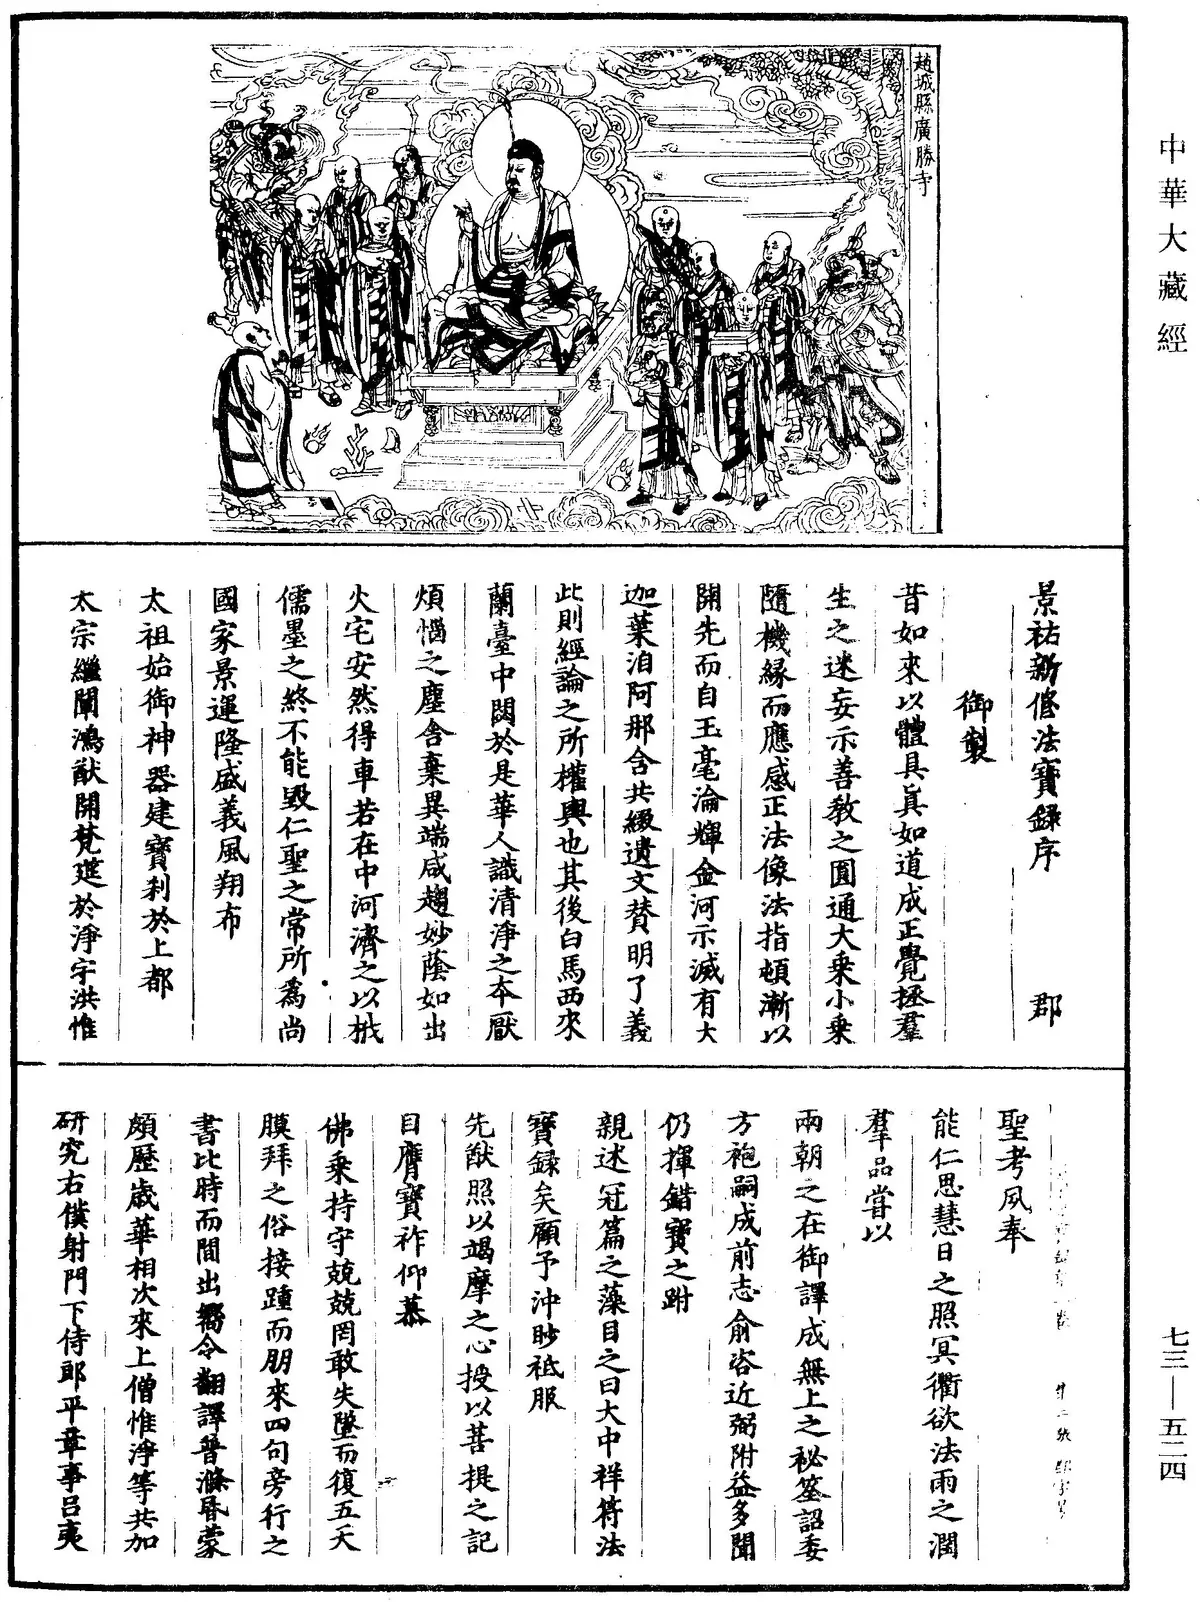 中華大藏經
趙城縣廣勝寺
景祐新修法寶錄序　郡
御製
昔如來以體具真如道成正覺拯羣
生之迷妄示善教之圓通大乘小乘
隨機緣而應感正法像法指頓漸以
開先而自玉毫淪輝金河示滅有大
迦葉洎阿那含共綴遺文賛明了義
此則經論之所權輿也其後白馬西來
蘭臺中闢於是華人識清淨之本厭
煩惱之塵舍棄異端咸趨妙蔭如出
火宅安然得車若在中河濟之以栰
儒墨之終不能毀仁聖之常所為尚
國家景運隆盛義風翔布
太祖始御神器建寶剎於上都
太宗繼闡鴻猷開梵筵於淨宇洪惟
聖考夙奉
能仁思慧日之照冥衢欲法雨之潤
羣品嘗以
兩朝之在御譯成無上之祕筌詔委
方袍嗣成前志俞咨近弼附益多聞
仍揮錯寶之跗
親述冠篇之藻目之曰大中祥符法
寶錄矣顧予沖眇祗服
先猷照以竭摩之心授以菩提之記
目膺寶祚仰慕
佛乘持守兢兢罔敢失墜而復五天
膜拜之俗接踵而朋來四句旁行之
書比時而間出嚮令翻譯普滌昏蒙
頗歷歲華相次來上僧惟淨等共加
研究右僕射門下侍郎平章事呂夷
七三—五二四